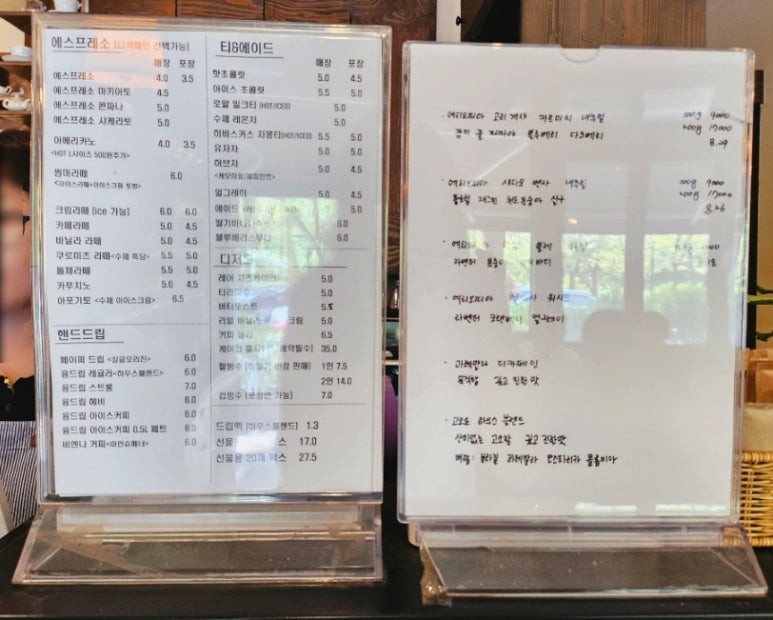 에스프레소 [디카페인 선택가능]
매장 포장
에스프레소 4.0 3.5
에스프레소 마키아토 4.5
에스프레소 콘파나 5.0
에스프레소 시케라토 5.0
아메리카노 4.0 3.5
<HOT L사이즈 500원추가>
썸머라떼 6.0
<아이스라떼+아이스크림 토핑>
크림라떼 [ice 가능] 6.0 6.0
카페라떼 5.0 4.5
바닐라 라떼 5.0 4.5
쿠로미츠 라떼 <수제 흑당> 5.5 5.0
돌체라떼 5.5 5.0
카푸치노 5.0 4.5
아포가토 <수제 아이스크림> 6.5
핸드드립
페이퍼 드립 <싱글오리진> 6.0
융드립 레귤러 <하우스블렌드> 6.0
융드립 스트롱 7.0
융드립 헤비 8.0
융드립 아이스커피 6.0
융드립 아이스커피 0.5L 페트 8.5
비엔나 커피<아인슈페너> 6.0
티&에이드
매장 포장
핫초콜릿 5.0 4.5
아이스 초콜릿 5.5 5.0
로얄 밀크티 [HOT/ICE] 5.0
수제 레몬차 5.0
히비스커스 자몽티[HOT/ICE] 5.5 5.0
유자차 5.0 5.0
허브차 5.0 4.5
<캐모마일/페퍼민트>
얼그레이 5.0 4.5
에이드 5.5 5.0
6.0
블루베리스무디 6.0
디저트
레어 치즈케이크 5.0
티라미수 5.0
버터토스트 5.5
리얼 바닐라 크림 5.0
커피 젤리 6.5
35.0
팥빙수 판매] 1인 7.5
2인 14.0
컵빙수 [포장만 가능] 7.0
드립백 [하우스블렌드] 1.3
선물 스 17.0
선물용 20개 박스 27.5
· 에티오피아 내추럴 100g 9000
블루베리 200g 17000
8.29
· 에티오피아 시다모 내추럴 100g 9000
200g 17000
8.26
· 에티오피아
라벤더
· 에티오피아 워시드
라벤더
· 과테말라 디카페인
묵직함 깊고 진한 맛
· 하우스 블렌드
산미없는 고소함 깊고 진한맛
브라질 과테말라 코스타리카 콜롬비아